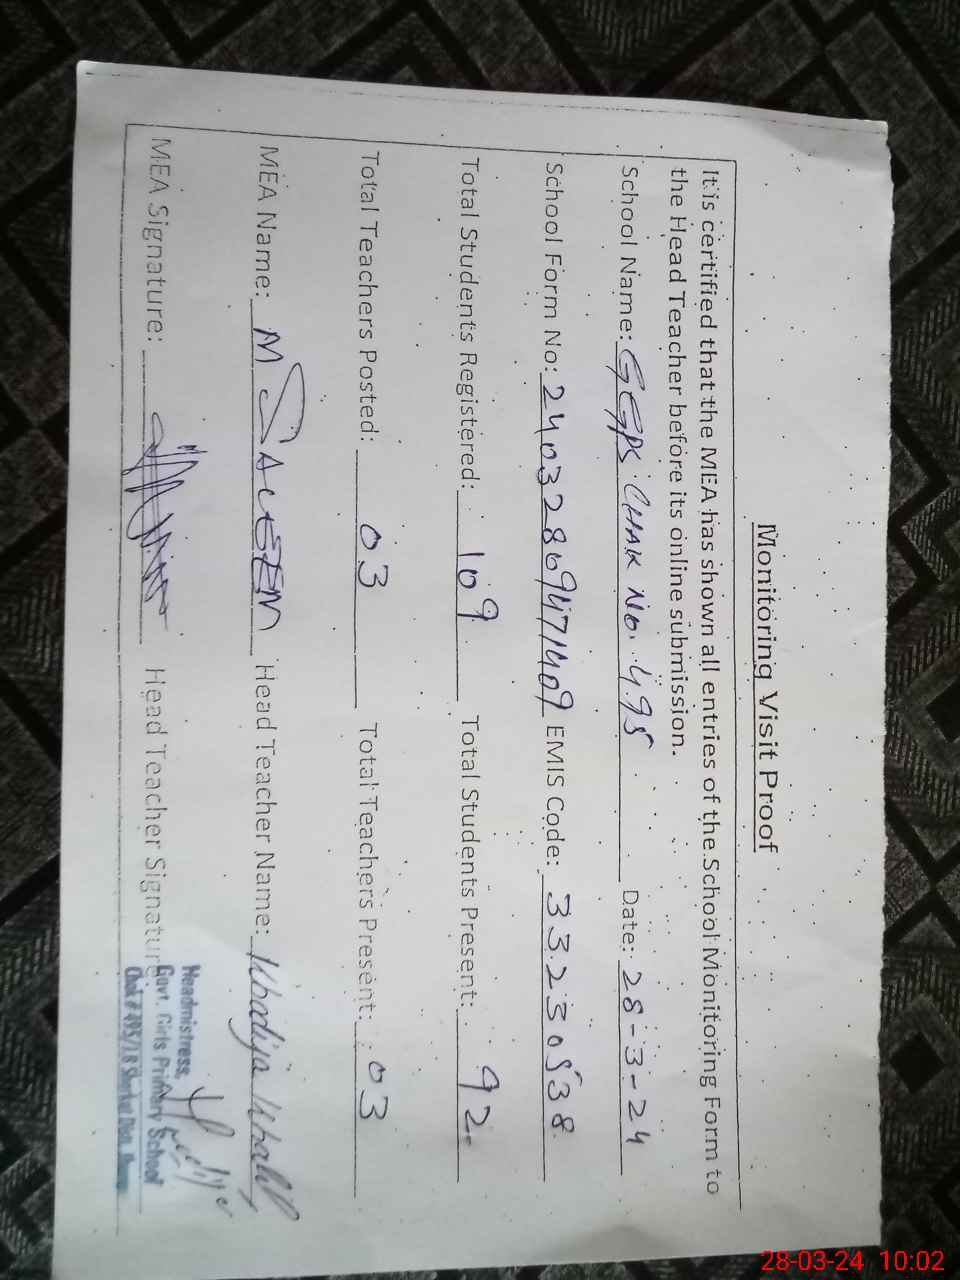 Monitoring Visit Proof
It is certified that the MEA has shown all entries of the School Monitoring Form to
the Head Teacher before its online submission.
School Name: GGPS CHAK No. 495 Date: 28-3-24
School Form No: 24032809471409 EMIS Code: 33230538
Total Students Registered: 109 Total Students Present: 92
Total Teachers Posted: 03 Total Teachers Present: 03
MEA Name: M SALEEM Head Teacher Name: Khadija Khalil
MEA Signature: Head Teacher Signature
Headmistress,
Govt. Girls Primary School
Chak # 495/J.B
28-03-24 10:02